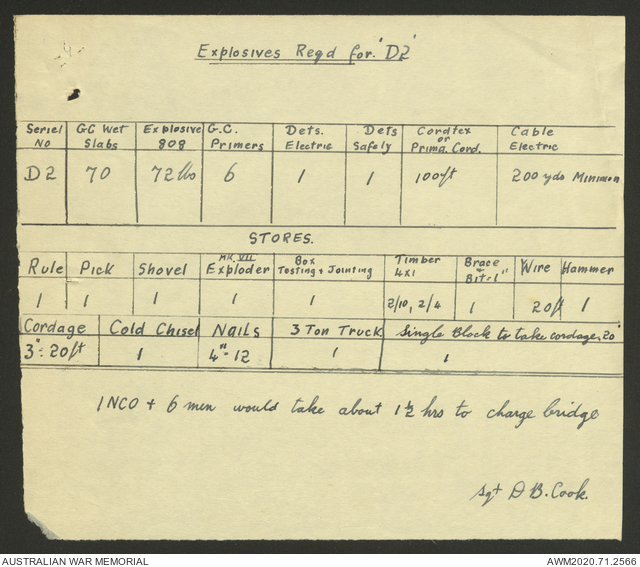 Explosives Reqd for 'D2'
Seriel No GC Wet Slabs Explosive 808 G.C. Primers Dets. Electric Dets Safely Cordtex or Prima. Cord. Cable Electric
D2 70 72 lbs 6 1 1 100ft 200 yds Minimon
STORES.
Rule Pick Shovel MK. VII Exploder Box Testing + Jointing Timber 4x1 Brace + Bit=1" Wire Hammer
1 1 1 1 1 2/10, 2/4 1 20ft 1
Cordage Cold Chisel Nails 3 Ton Truck Single Block to take cordage, 20'
3" = 20ft 1 4"- 12 1 1
1 NCO + 6 men would take about 1½ hrs to charge bridge
Sgt D B. Cook.
AUSTRALIAN WAR MEMORIAL AWM2020.71.2566